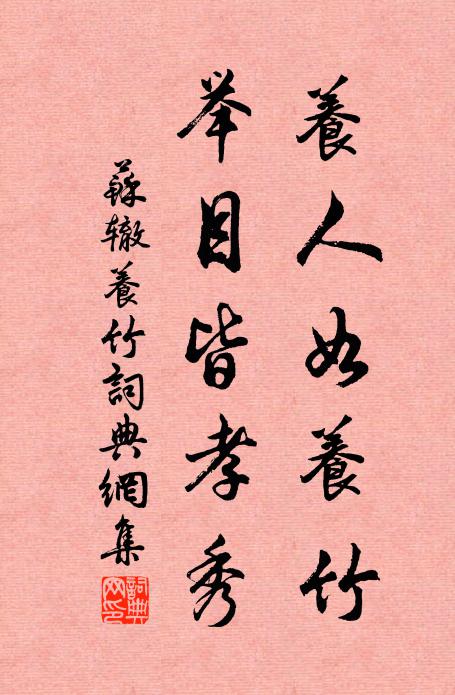 養人如養竹
举目皆孝秀
蘇辙養竹詞典網集
詞典网印